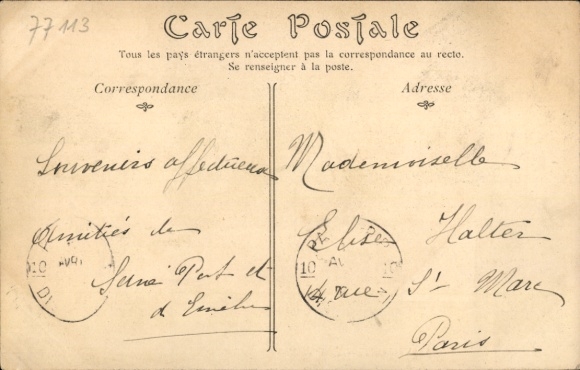 77 113
Carte Postale
Tous les pays étrangers n'acceptent pas la correspondance au recto.
Se renseigner à la poste.
Correspondance
Souvenirs affectueux
Amitiés de
Seine Port et
d'Emélie
Adresse
Mademoiselle
Elise Halter
4 rue St Marc
Paris
10
10
10